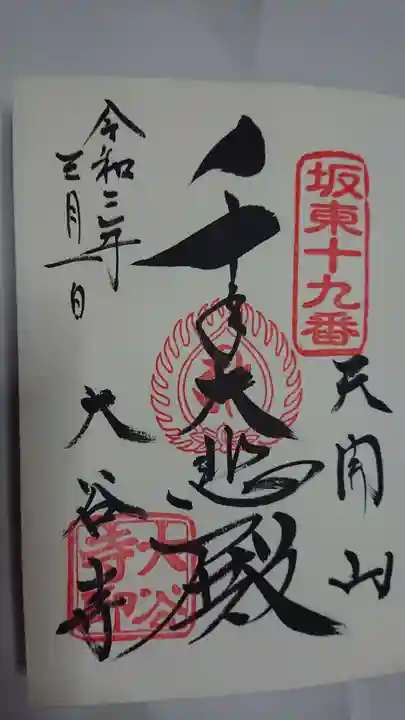 坂東十九番
天開山
千手大悲殿
令和三年
三月一日
大谷寺
大谷寺印